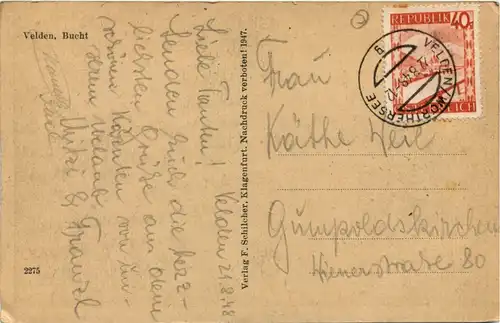 Velden, Bucht
Velden 21.8.48
Liebe Tanten!
Senden Euch die herz-
lichsten Grüße aus dem
schönen Kärnten von un-
serem Urlaub
Mitzi & Franzl
2275
Verlag F. Schilcher, Klagenfurt. Nachdruck verboten! 1947.
REPUBLIK 40g
VELDEN (WÖRTHERSEE)
Frau
Käthe Weil
Gumpoldskirchen
Wienerstraße 80